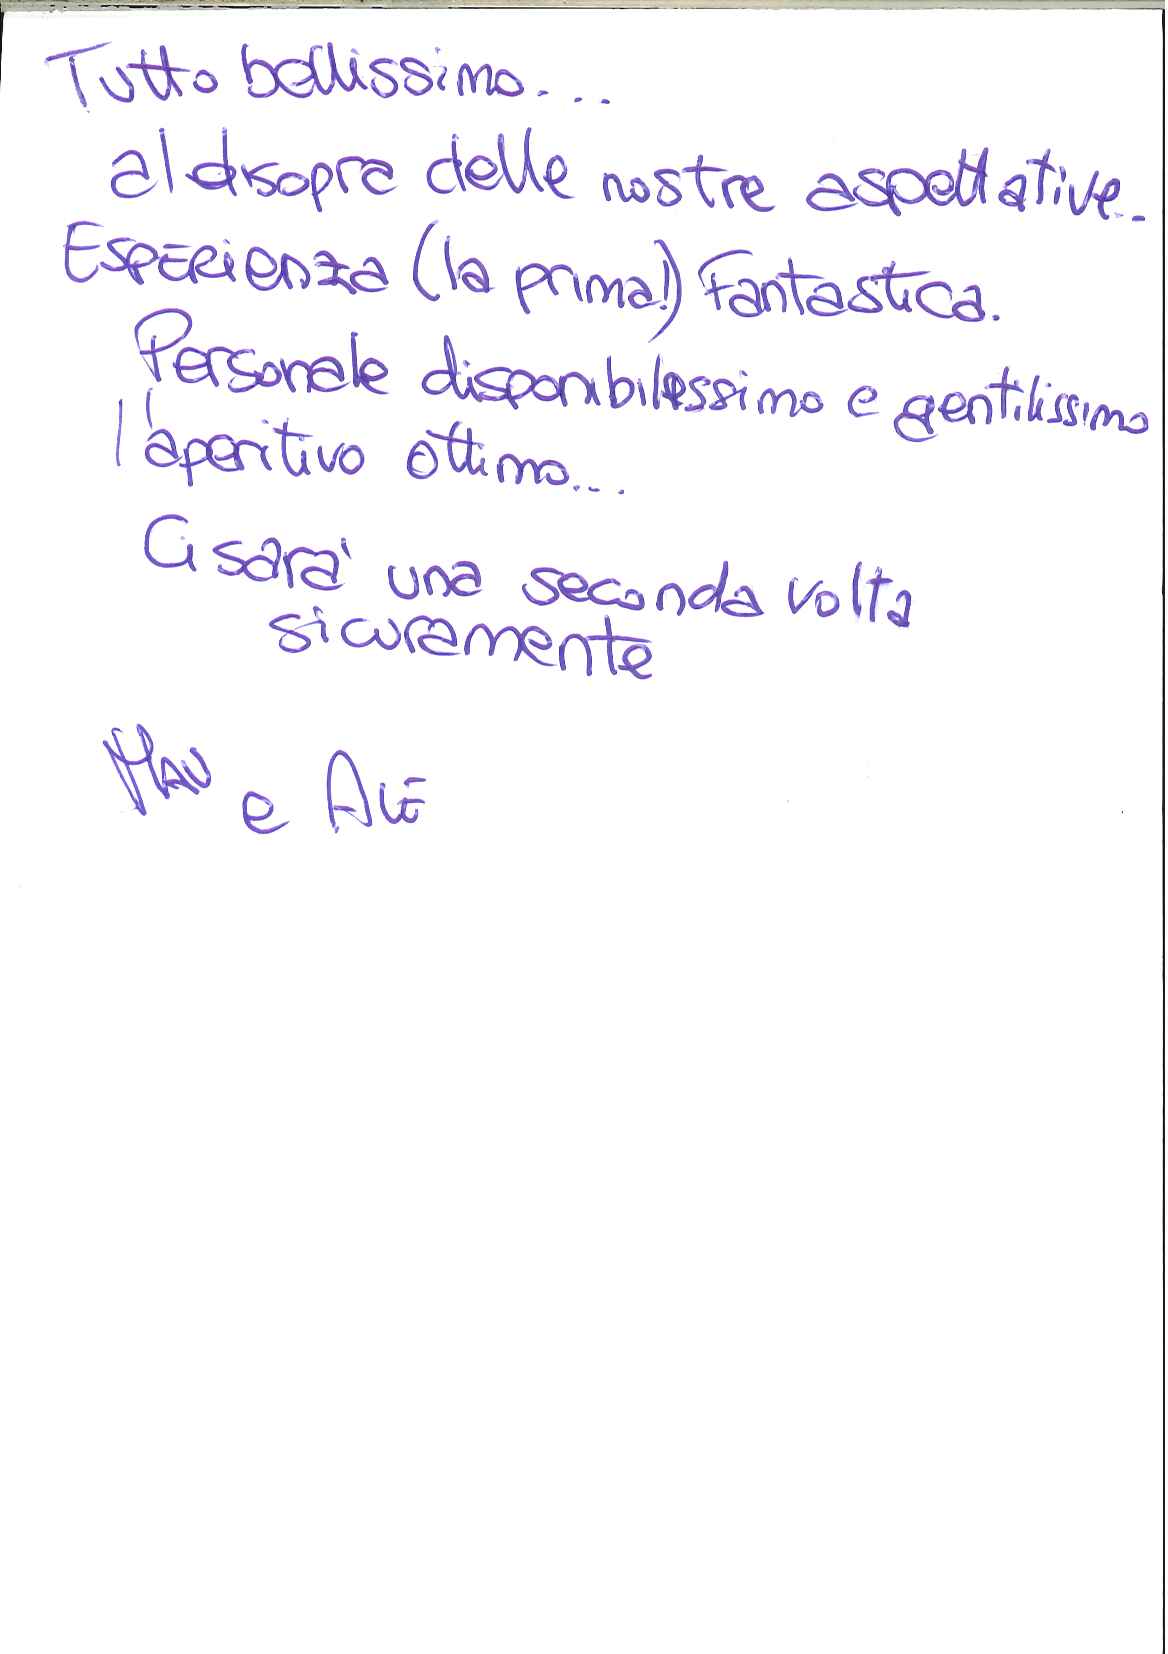 Tutto bellissimo...
al disopra delle nostre aspettative..
Esperienza (la prima!) Fantastica.
Personale disponibilissimo e gentilissimo
l'aperitivo ottimo...
Ci sarà una seconda volta
sicuramente
Mau e Ale